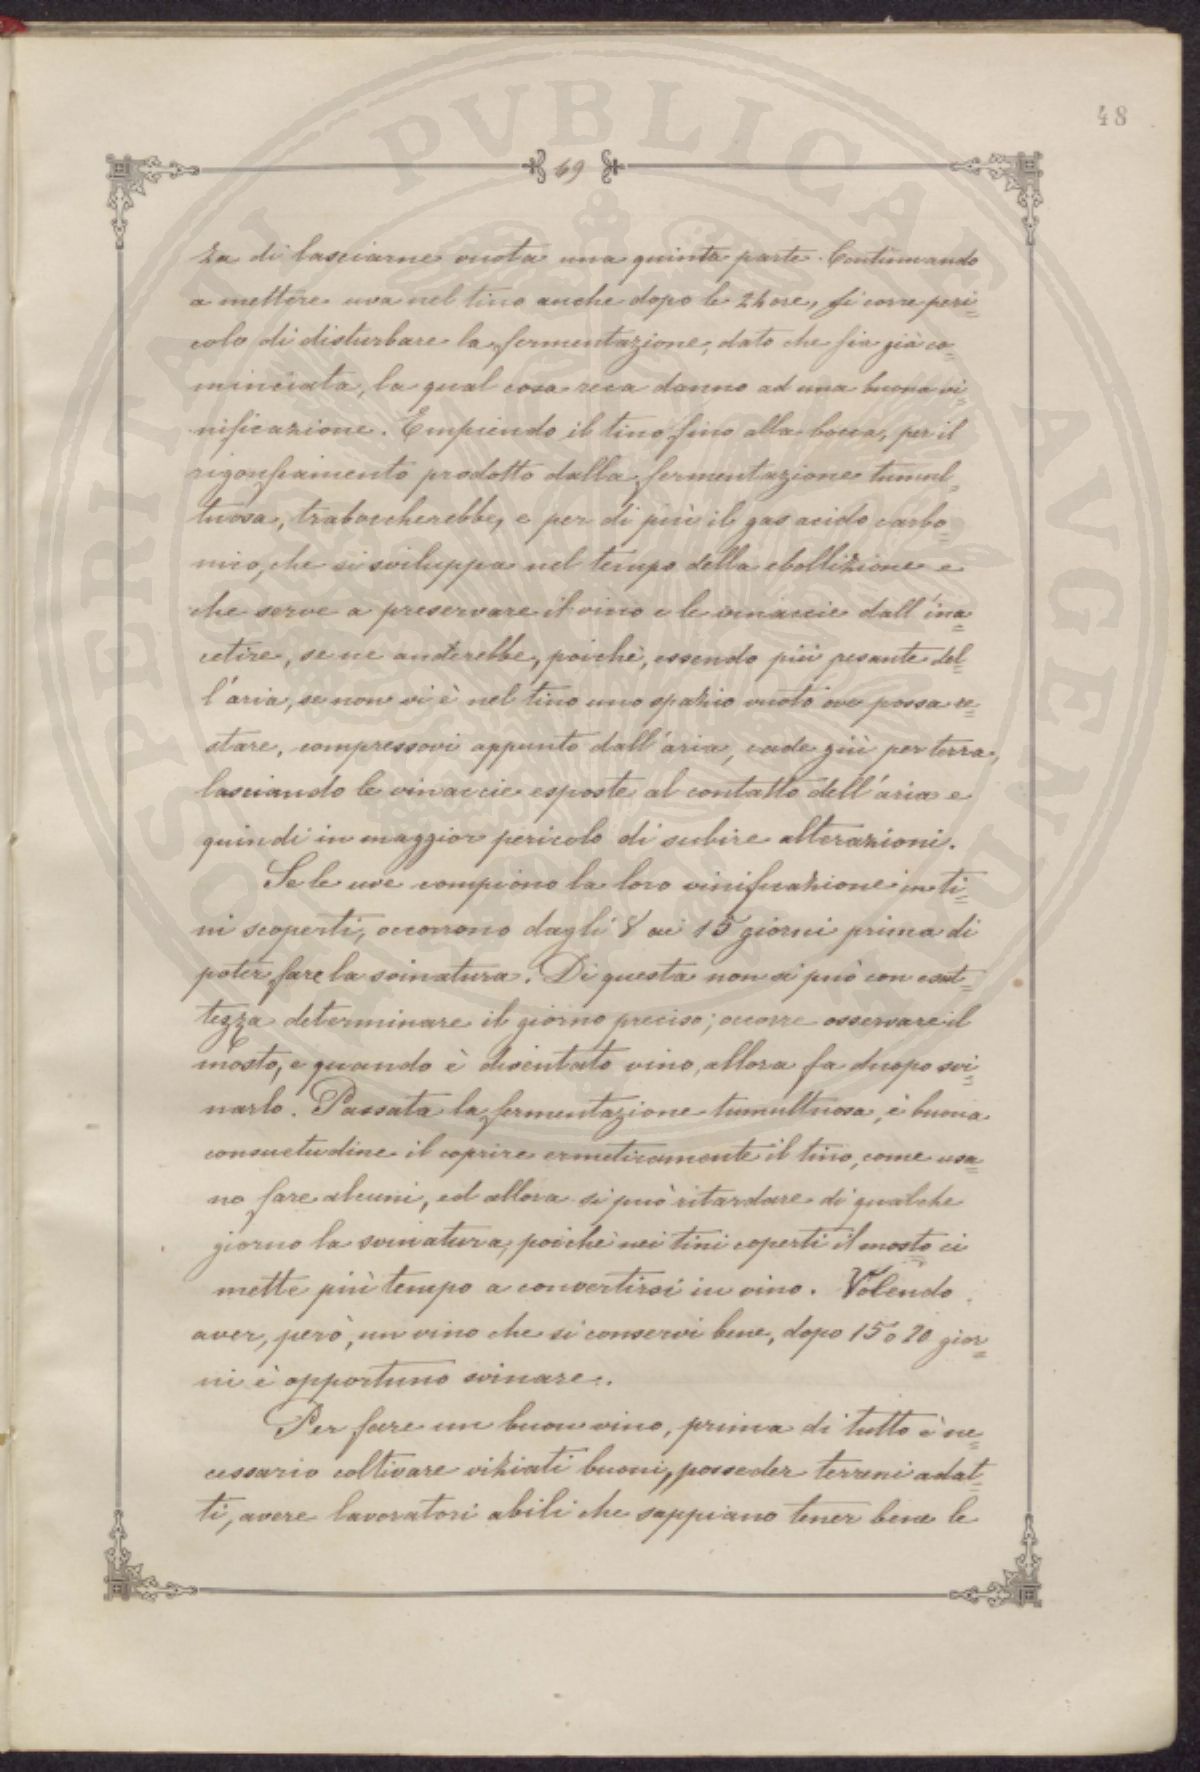 48
69
za di lasciarne vuota una quinta parte. Continuando
a mettere uva nel tino anche dopo le 24 ore, si corre peri=
colo di disturbare la fermentazione, dato che sia già co=
minciata, la qual cosa reca danno ad una buona vi=
nificazione. Empiendo il tino fino alla bocca, per il
rigonfiamento prodotto dalla fermentazione tumul=
tuosa, traboccherebbe, e per di più il gas acido carbo=
nico, che si sviluppa nel tempo della ebollizione e
che serve a preservare il vino e le vinaccie dall'ina=
cetire, se ne anderebbe, poichè, essendo più pesante del=
l'aria, se non vi è nel tino uno spazio vuoto ove possa re=
stare, compressovi appunto dall'aria, cade giù per terra,
lasciando le vinaccie esposte al contatto dell'aria e
quindi in maggior pericolo di subire alterazioni.
Se le uve compiono la loro vinificazione in ti=
ni scoperti, occorrono dagli 8 ai 15 giorni prima di
poter fare la svinatura. Di questa non si può con esat=
tezza determinare il giorno preciso; occorre osservare il
mosto, e quando è diventato vino, allora fa duopo svi=
narlo. Passata la fermentazione tumultuosa, è buona
consuetudine il coprire ermeticamente il tino, come usa=
no fare alcuni, ed allora si può ritardare di qualche
giorno la svinatura, poichè nei tini coperti il mosto ci
mette più tempo a convertirsi in vino. Volendo
aver, però, un vino che si conservi bene, dopo 15 o 20 gior=
ni è opportuno svinare.
Per fare un buon vino, prima di tutto è ne=
cessario coltivare viziati buoni, posseder terreni adat=
ti, avere lavoratori abili che sappiano tener bene le
PVBLICAE
PROSPERITATI
AVGENDAE